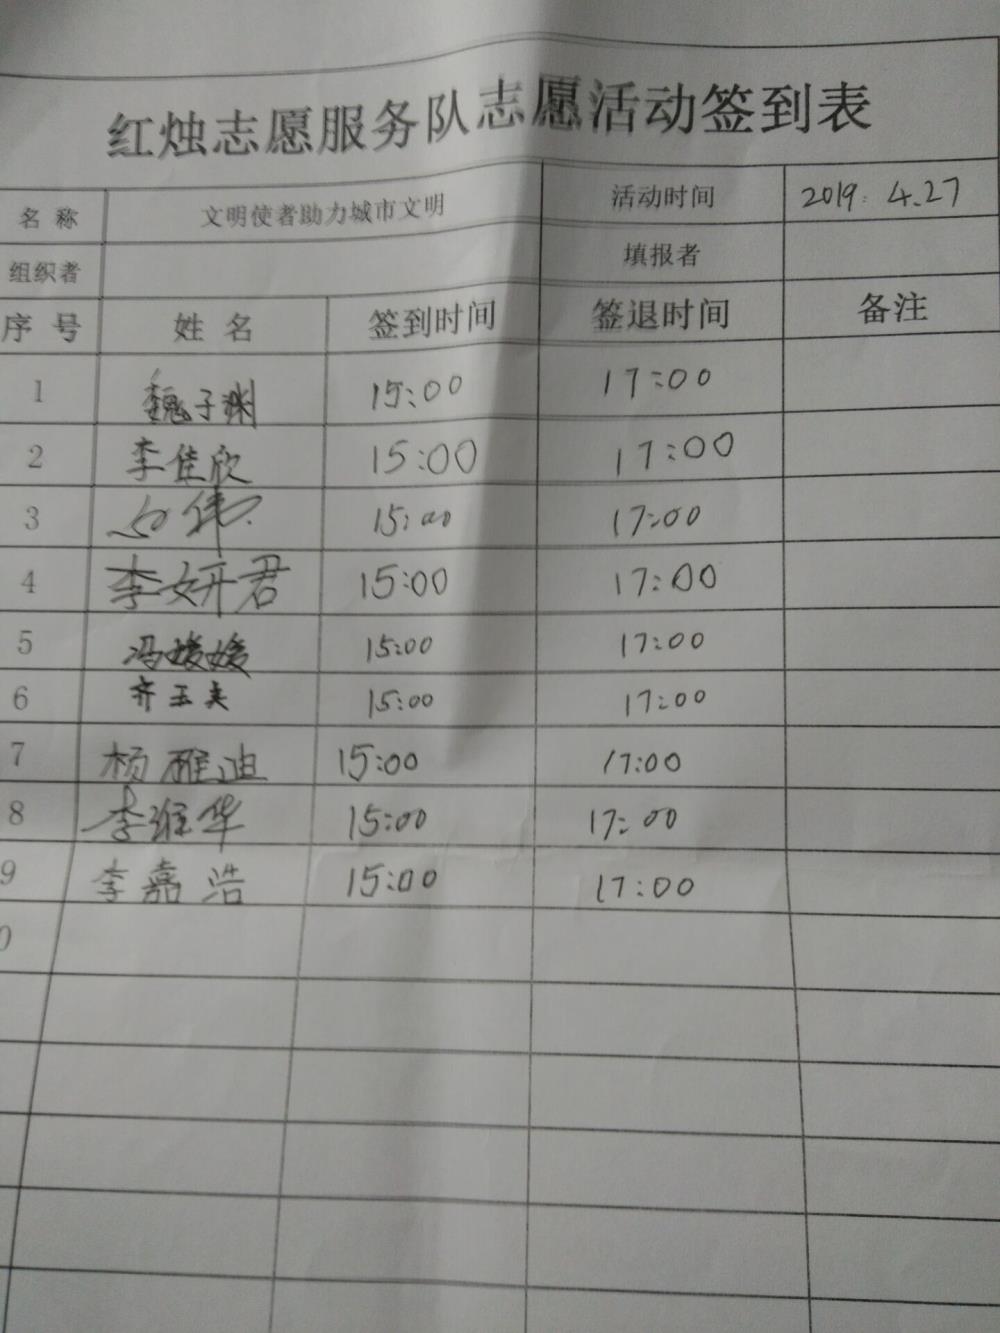 红烛志愿服务队志愿活动签到表
名称 文明使者助力城市文明 活动时间 2019. 4.27
组织者 填报者
序号 姓名 签到时间 签退时间 备注
1 魏子渊 15:00 17:00
2 李佳欣 15:00 17:00
3 伟 15:00 17:00
4 李妍君 15:00 17:00
5 冯媛媛 15:00 17:00
6 齐玉夫 15:00 17:00
7 杨雅迪 15:00 17:00
8 李维华 15:00 17:00
9 李嘉浩 15:00 17:00
0